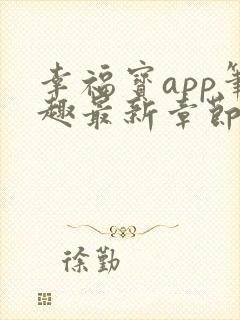 幸福宝app笔
趣最新章节
徐勤